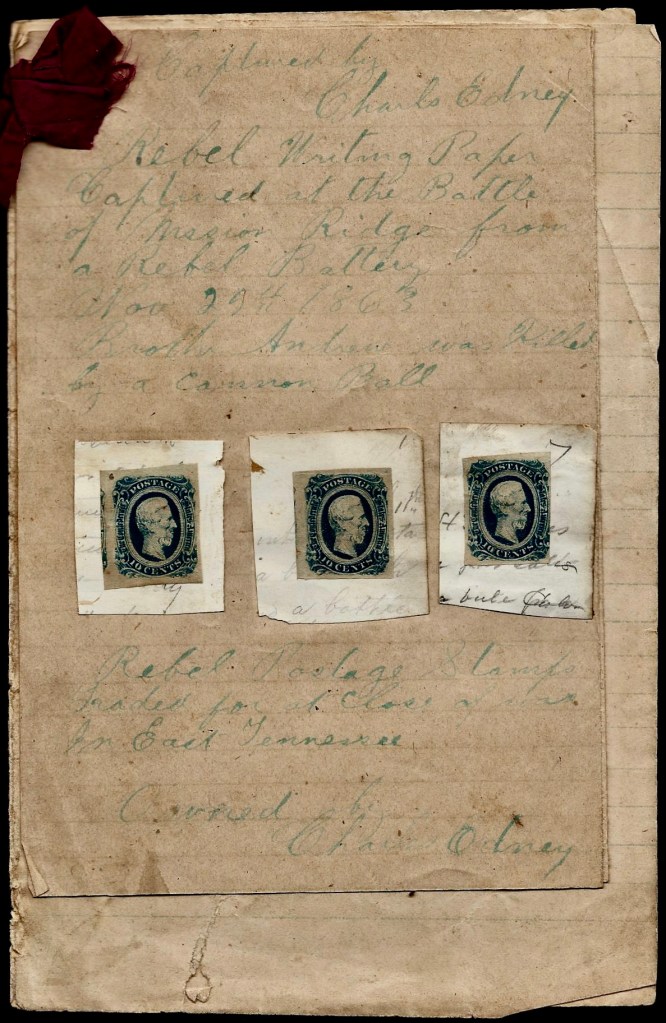 Captured by
Charls Edney
Rebel Writing Paper
Captured at the Battle
of Mission Ridge from
a Rebel Battery
Nov 1863
Brother Andrew was Killed
by a Cannon Ball
POSTAGE
10 CENTS
POSTAGE
10 CENTS
POSTAGE
10 CENTS
Rebel Postage Stamps
traded for at Close
In East Tennessee
by
Charls Edney